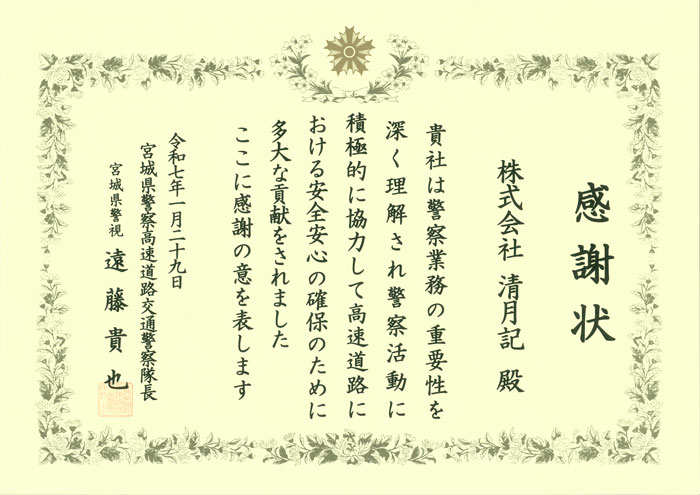 感謝状
株式会社 清月記 殿
貴社は警察業務の重要性を
深く理解され警察活動に
積極的に協力して高速道路に
おける安全安心の確保のために
多大な貢献をされました
ここに感謝の意を表します
令和七年一月二十九日
宮城県警察高速道路交通警察隊長
宮城県警視 遠藤貴也